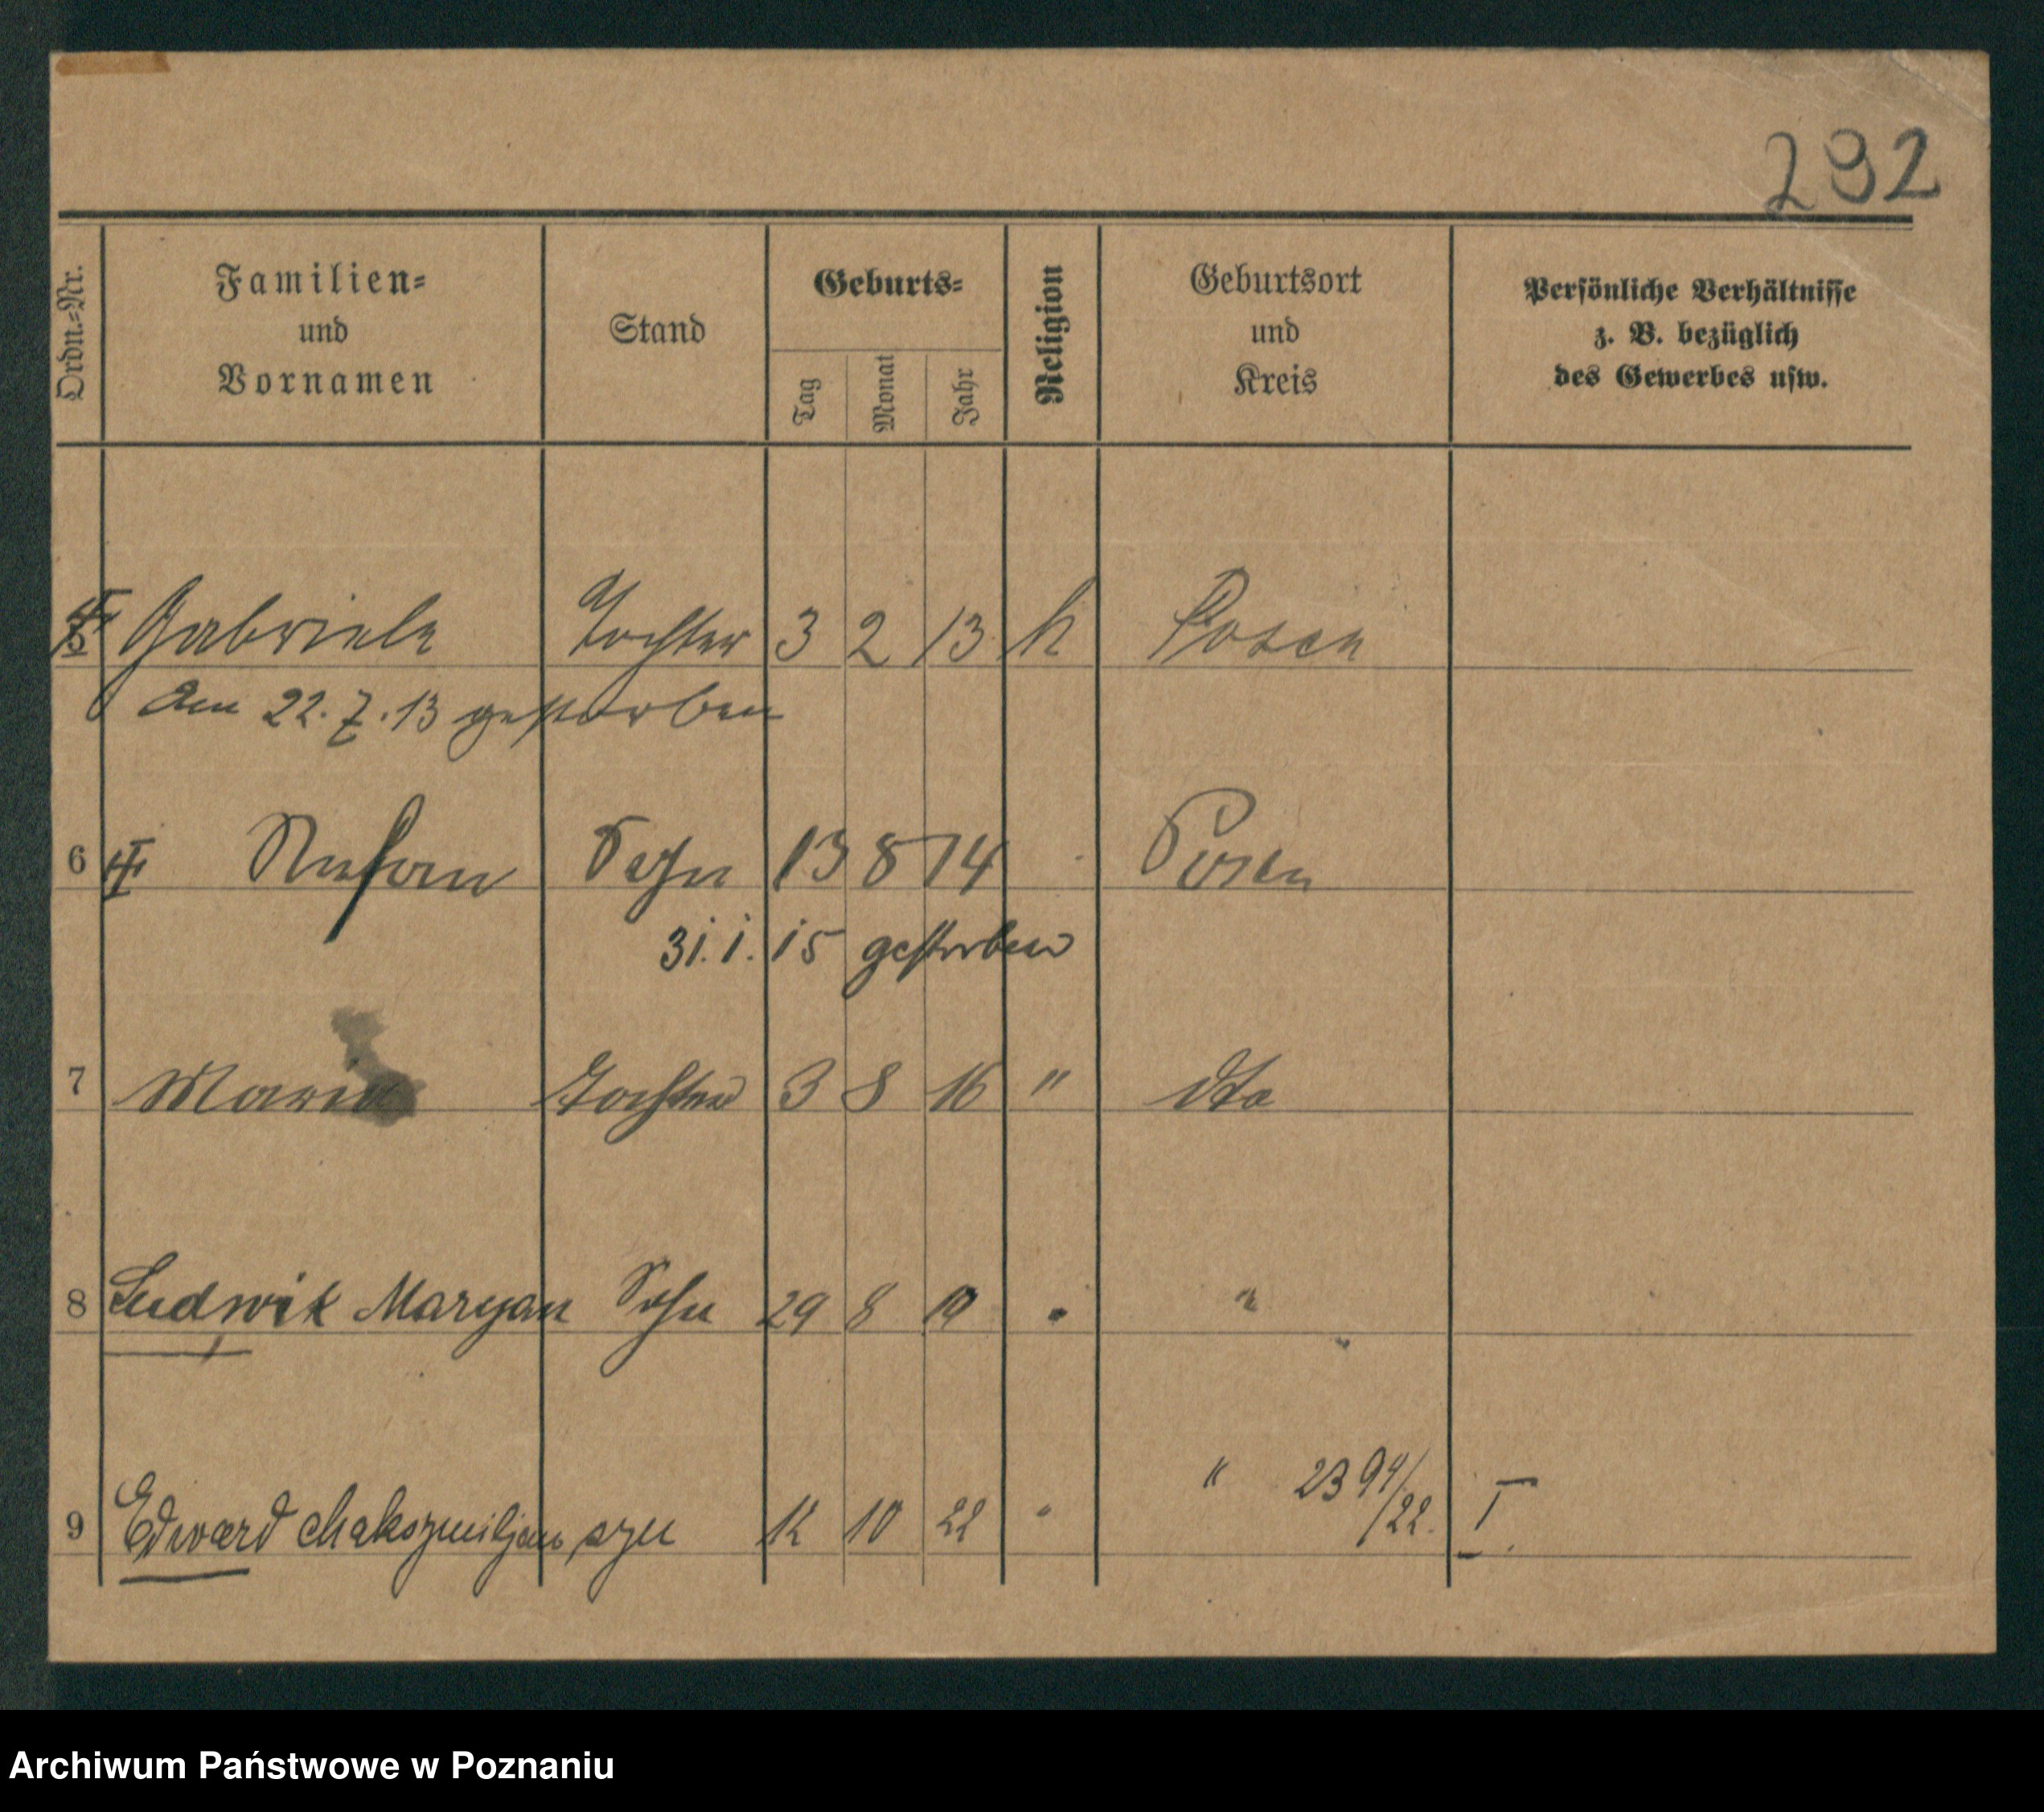 292
Ordn.-Nr.
Familien-
und
Vornamen
Stand
Geburts-
Tag
Monat
Jahr
Religion
Geburtsort
und
Kreis
Persönliche Verhältnisse
z. B. bezüglich
des Gewerbes usw.
5 Gabriele Tochter 3 2 13 k Posen
Am 22.7.13 gestorben
6 Stefan Sohn 13 8 14 Posen
31.1.15 gestorben
7 Maria Tochter 3 8 16 " dto
8 Ludwik Maryan Sohn 29 8 19 "
9 Edward Maksymiljan syn 12 10 22 " " 2394/22. I
Archiwum Państwowe w Poznaniu